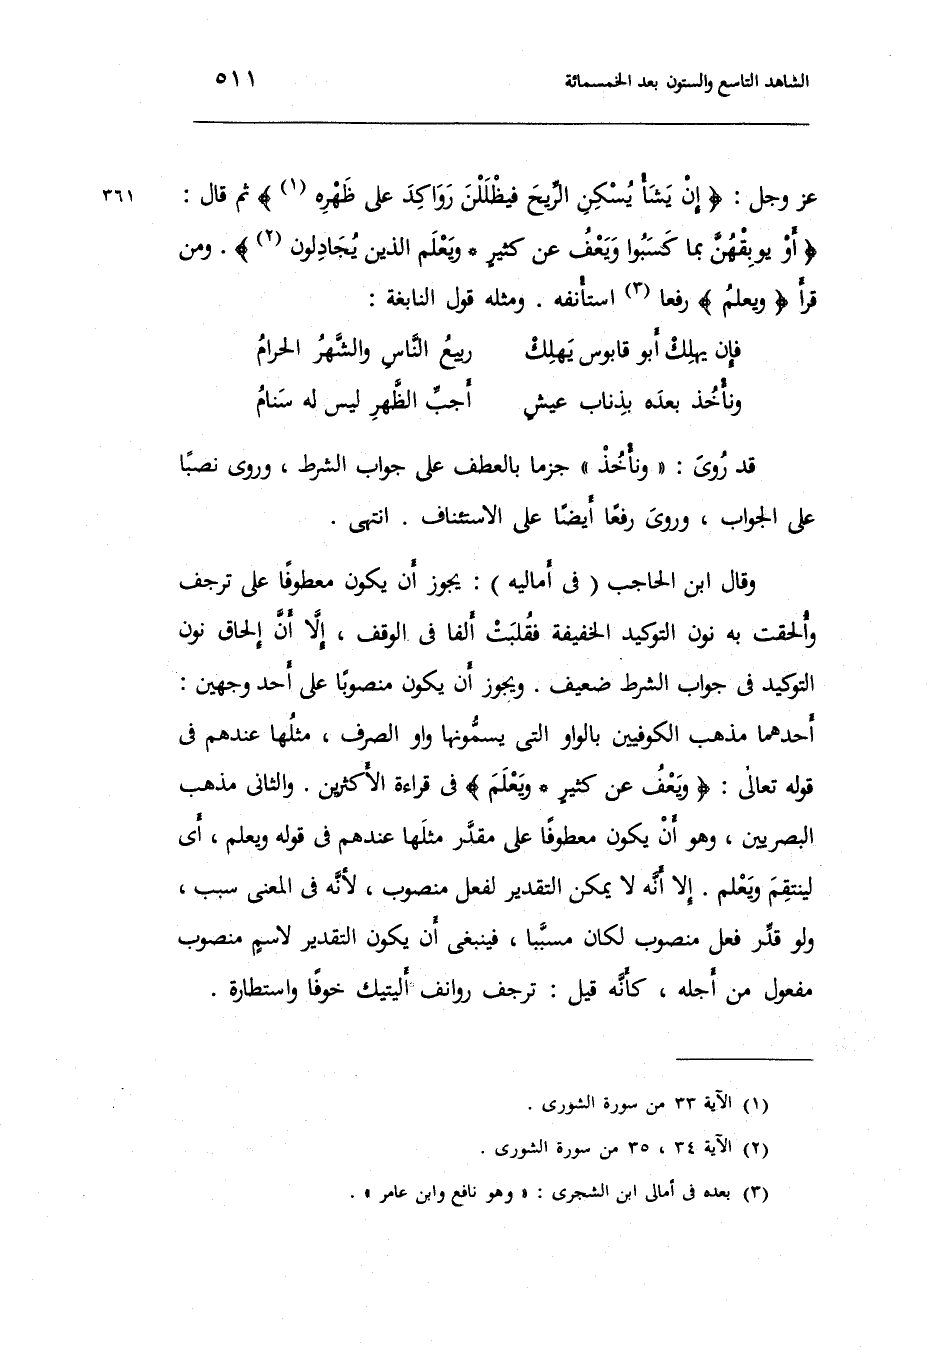 الشاهد التاسع والستون بعد الخمسمائة ٥١١
عز وجل : ﴿ إِنْ يَشَأْ يُسْكِنِ الرِّيحَ فيظْلَلْنَ رَوَاكِدَ على ظَهْرِه (١) ﴾ ثم قال : ٣٦١
﴿ أَوْ يوبِقْهُنَّ بما كَسَبُوا وَيَعْفُ عن كثيرٍ * ويَعْلَم الذين يُجَادِلون (٢) ﴾ . ومن
قرأ ﴿ ويعلمُ ﴾ رفعا (٣) استأنفه . ومثله قول النابغة :
فإن يهلِكْ أبو قابوس يَهلِكْ ربيعُ النَّاسِ والشَّهرُ الحرامُ
ونأْخُذ بعدَه بِذِناب عيشٍ أجبِّ الظَّهرِ ليس له سَنامُ
قد رُوىَ : « ونأْخُذْ » جزما بالعطف على جواب الشرط ، وروى نصبًا
على الجواب ، وروىَ رفعًا أيضًا على الاستئناف . انتهى .
وقال ابن الحاجب ( فى أماليه ) : يجوز أن يكون معطوفًا على ترجف
وأُلحقت به نون التوكيد الخفيفة فقُلبَتْ ألفا فى الوقف ، إلَّا أنَّ إلحاق نون
التوكيد فى جواب الشرط ضعيف . ويجوز أن يكون منصوبًا على أحد وجهين :
أحدهما مذهب الكوفيين بالواو التى يسمُّونها واو الصرف ، مثلُها عندهم فى
قوله تعالى : ﴿ ويَعْفُ عن كثيرٍ * ويَعْلَمَ ﴾ فى قراءة الأكثرين . والثانى مذهب
البصريين ، وهو أنْ يكون معطوفًا على مقدَّر مثلَها عندهم فى قوله ويعلم ، أى
لينتقِمَ ويَعْلم . إلا أنَّه لا يمكن التقدير لفعل منصوب ، لأنَّه فى المعنى سبب ،
ولو قدِّر فعل منصوب لكان مسبَّبا ، فينبغى أن يكون التقدير لاسمٍ منصوب
مفعول من أجله ، كأنَّه قيل : ترجف روانف أليتيك خوفًا واستطارة .
(١) الآية ٣٣ من سورة الشورى .
(٢) الآية ٣٤ ، ٣٥ من سورة الشورى .
(٣) بعده فى أمالى ابن الشجرى : « وهو نافع وابن عامر » .